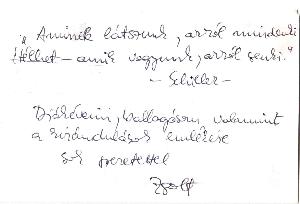 „Aminek látszunk, arról mindenki
ítélhet – amik vagyunk, arról senki.”
– Schiller –
Diákéveim, ballagásom, valamint
a kirándulások emlékére
sok szeretettel
Zsolt